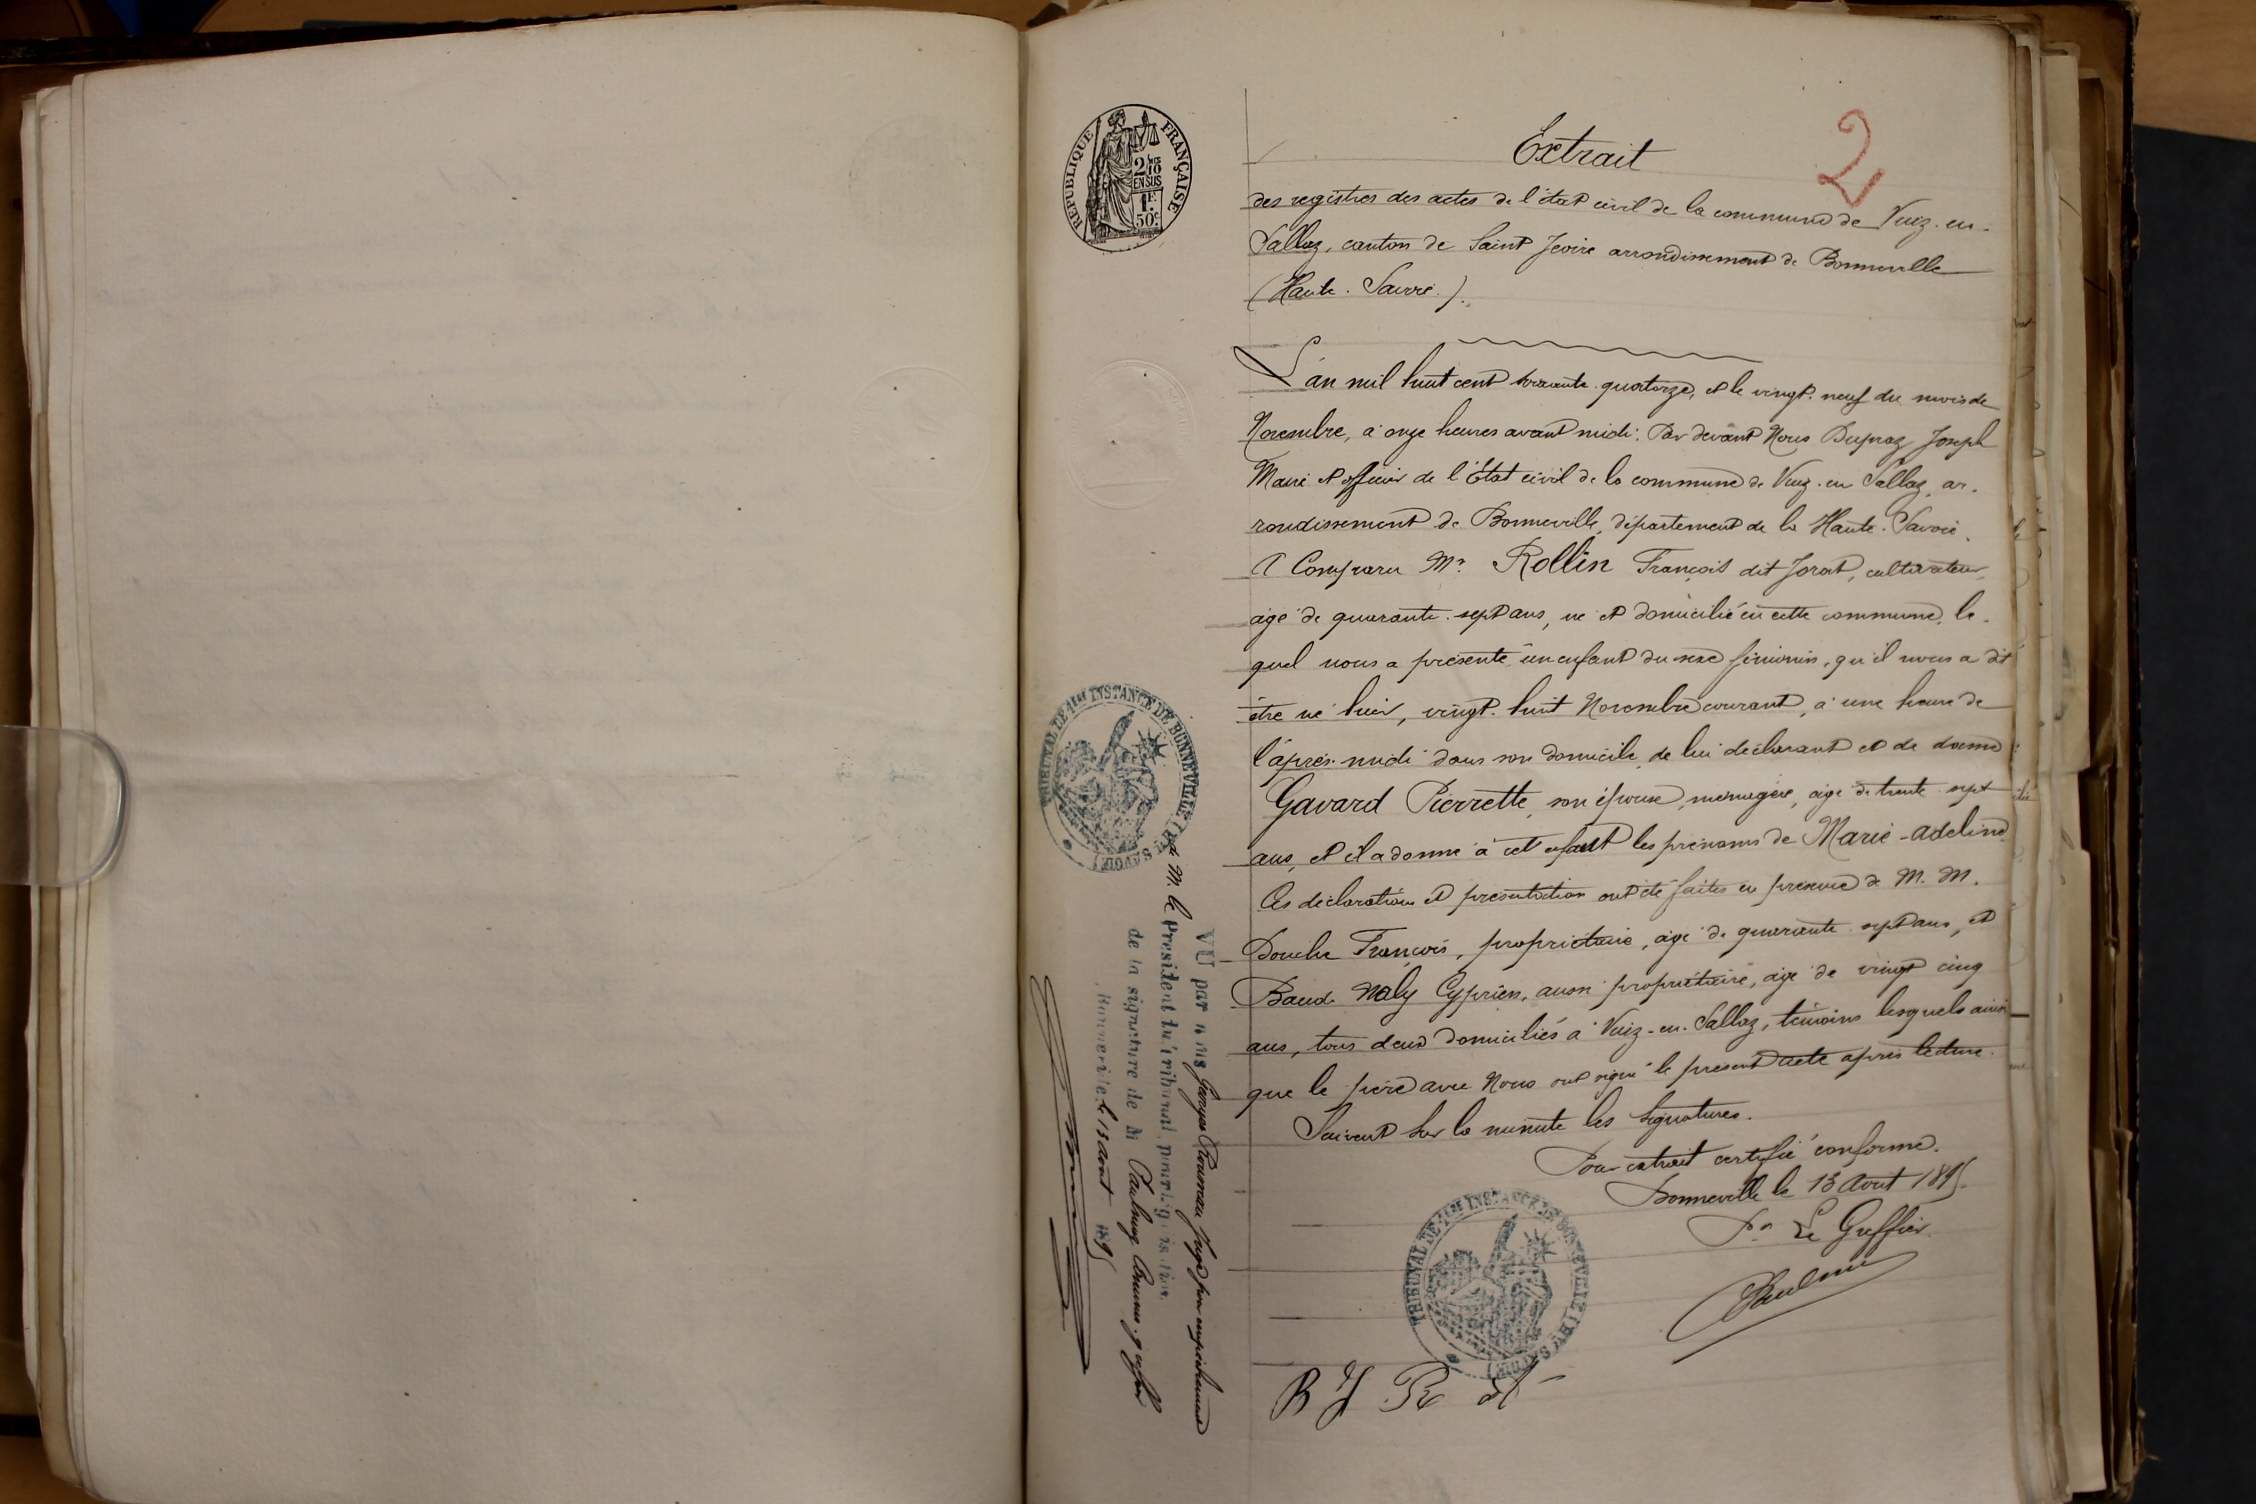 RÉPUBLIQUE FRANÇAISE
2/10
EN SUS
1F.
50c
2
Extrait
des registres des actes de l'état civil de la commune de Viuz-en-
Sallaz, canton de Saint Jeoire arrondissement de Bonneville
(Haute-Savoie.).
L'an mil huit cent soixante-quatorze, et le vingt-neuf du mois de
Novembre, à onze heures avant midi. Par devant Nous Dupraz Joseph
Maire et officier de l'État civil de la commune de Viuz-en Sallaz, ar-
rondissement de Bonneville, département de la Haute-Savoie.
A Comparu Mr. Rollin François dit Jorat, cultivateur,
âgé de quarante-sept ans, né et domicilié en cette commune, le-
quel nous a présenté un enfant du sexe féminin, qu'il nous a dit
être né hier, vingt-huit Novembre courant, à une heure de
l'après-midi dans son domicile, de lui déclarant et de dame
Gavard Pierrette, son épouse, ménagère, âgée de trente-sept
ans, et il a donné à cet enfant les prénoms de Marie-Adeline.
Ces déclaration et présentation ont été faites en présence de M. M.
Douche François, propriétaire, âgé de quarante-sept ans, et
Baud-Naly Cyprien, aussi propriétaire, âgé de vingt cinq
ans, tous deux domiciliés à Viuz-en-Sallaz, témoins lesquels ainsi
que le père avec Nous ont signé le présent acte après lecture.
Suivent sur la minute les signatures.
Pour extrait certifié conforme.
Bonneville le 13 Août 1895.
Pr Le Greffier
TRIBUNAL DE 1ère INSTANCE DE BONNEVILLE (Hte SAVOIE)
VU par nous Juge par empêchement
de M. le Président du Tribunal, pour légalisation
de la signature de M
Bonneville, le 13 Août 1895
TRIBUNAL DE 1ère INSTANCE DE BONNEVILLE (Hte SAVOIE)